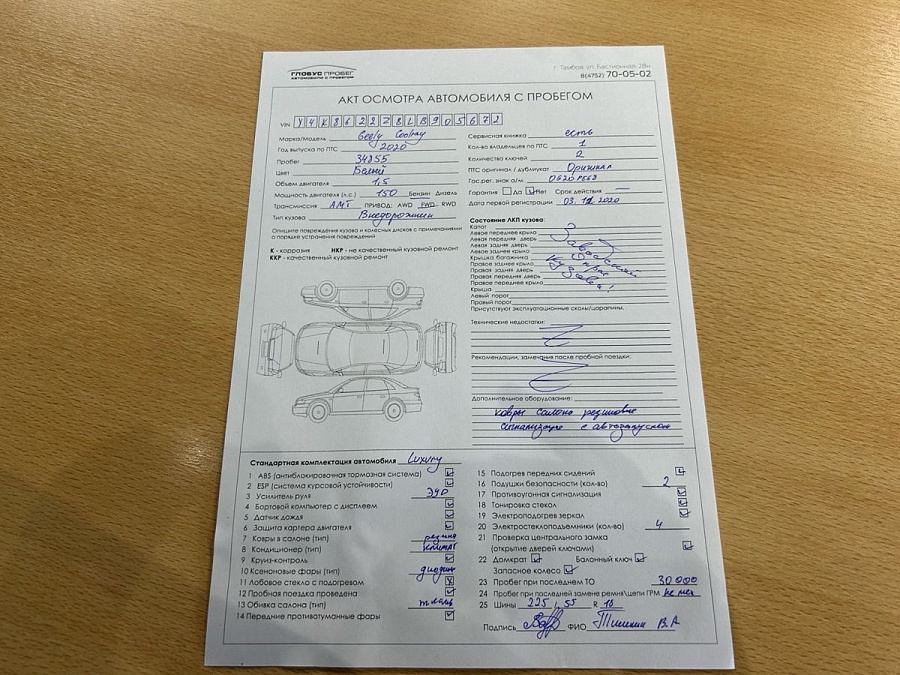 ГЛОБУС ПРОБЕГ
АВТОМОБИЛИ С ПРОБЕГОМ
г. Тамбов, ул. Бастионная, 28н
8(4752) 70-05-02
АКТ ОСМОТРА АВТОМОБИЛЯ С ПРОБЕГОМ
VIN Y4K8622Z8LB905672
Марка/Модель Geely Coolray
Год выпуска по ПТС 2020
Пробег 34855
Цвет Белый
Объем двигателя 1,5
Мощность двигателя (л.с.) 150 Бензин Дизель
Трансмиссия АМТ ПРИВОД: AWD FWD RWD
Тип кузова Внедорожник
Опишите повреждения кузова и колесных дисков с примечаниями
о порядке устранения повреждений
К - коррозия НКР - не качественный кузовной ремонт
ККР - качественный кузовной ремонт
Сервисная книжка есть
Кол-во владельцев по ПТС 1
Количество ключей 2
ПТС оригинал / дубликат Оригинал
Гос.рег. знак а/м
Гарантия Да Нет Срок действия —
Дата первой регистрации 2020
Состояние ЛКП кузова:
Капот
Левое переднее крыло
Левая передняя дверь
Левая задняя дверь
Левое заднее крыло
Крышка багажника
Правое заднее крыло
Правая задняя дверь
Правая передняя дверь
Правое переднее крыло
Крыша
Левый порог
Правый порог
Заводской
окрас
кузова!
Присутствуют эксплуатационные сколы/царапины.
Технические недостатки:
Рекомендации, замечания после пробной поездки:
Дополнительное оборудование:
ковры салона резиновые
сигнализация с автозапуском
Стандартная комплектация автомобиля Luxury
1 ABS (антиблокировочная тормозная система)
2 ESP (система курсовой устойчивости)
3 Усилитель руля ЭУР
4 Бортовой компьютер с дисплеем
5 Датчик дождя
6 Защита картера двигателя
7 Ковры в салоне (тип) резина
8 Кондиционер (тип) климат
9 Круиз-контроль
10 Ксеноновые фары (тип) диодные
11 Лобовое стекло с подогревом
12 Пробная поездка проведена
13 Обивка салона (тип) ткань
14 Передние противотуманные фары
15 Подогрев передних сидений
16 Подушки безопасности (кол-во) 2
17 Противоугонная сигнализация
18 Тонировка стекол
19 Электроподогрев зеркал
20 Электростеклоподъемники (кол-во) 4
21 Проверка центрального замка
(открытие дверей ключами)
22 Домкрат Балонный ключ
Запасное колесо
23 Пробег при последнем ТО 30 000
24 Пробег при последней замене ремня\цепи ГРМ
25 Шины 225 / 55 R 18
Подпись ФИО В.А